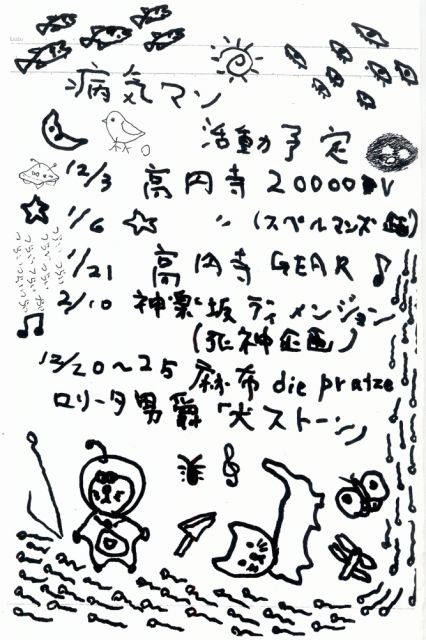 病気マン
活動予定
12/3 高円寺 20000V
1/6 ☆ 〃 (スペルマンズ企画)
1/21 高円寺 GEAR ♪
2/10 神楽坂 ディメンジョン
(死神企画)
12/20〜25 麻布 die pratze
ロリータ男爵「犬ストーン」